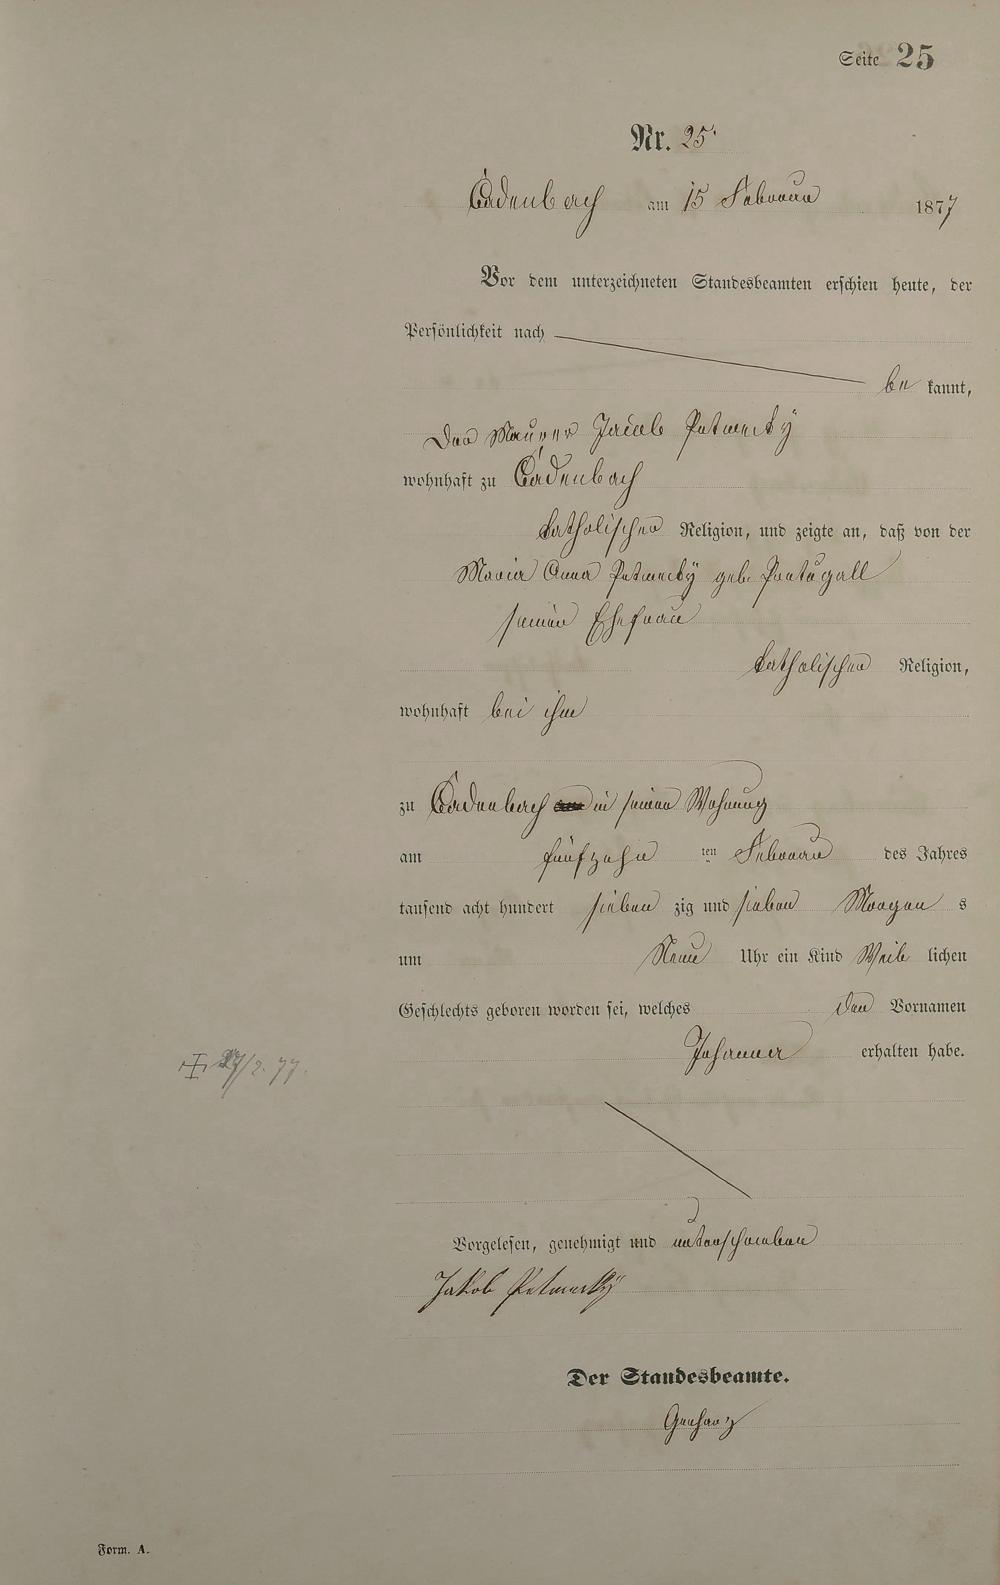 Seite 25
Nr. 25
Cadenbach am 15 Februar 1877
Vor dem unterzeichneten Standesbeamten erschien heute, der
Persönlichkeit nach
be kannt,
Der Maurer Jacob Petmecky
wohnhaft zu Cadenbach
katholischer Religion, und zeigte an, daß von der
Maria Anna Petmecky geb. Portugall
seiner Ehefrau
katholischer Religion,
wohnhaft bei ihm
zu Cadenbach in seiner Wohnung
am fünfzehn ten Februar des Jahres
tausend acht hundert sieben zig und sieben Morgen s
um Neun Uhr ein Kind Weib lichen
Geschlechts geboren worden sei, welches den Vornamen
Johanna erhalten habe.
/2. 77.
Vorgelesen, genehmigt und unterschrieben
Jakob Petmecky
Der Standesbeamte.
Gerharz
Form. A.